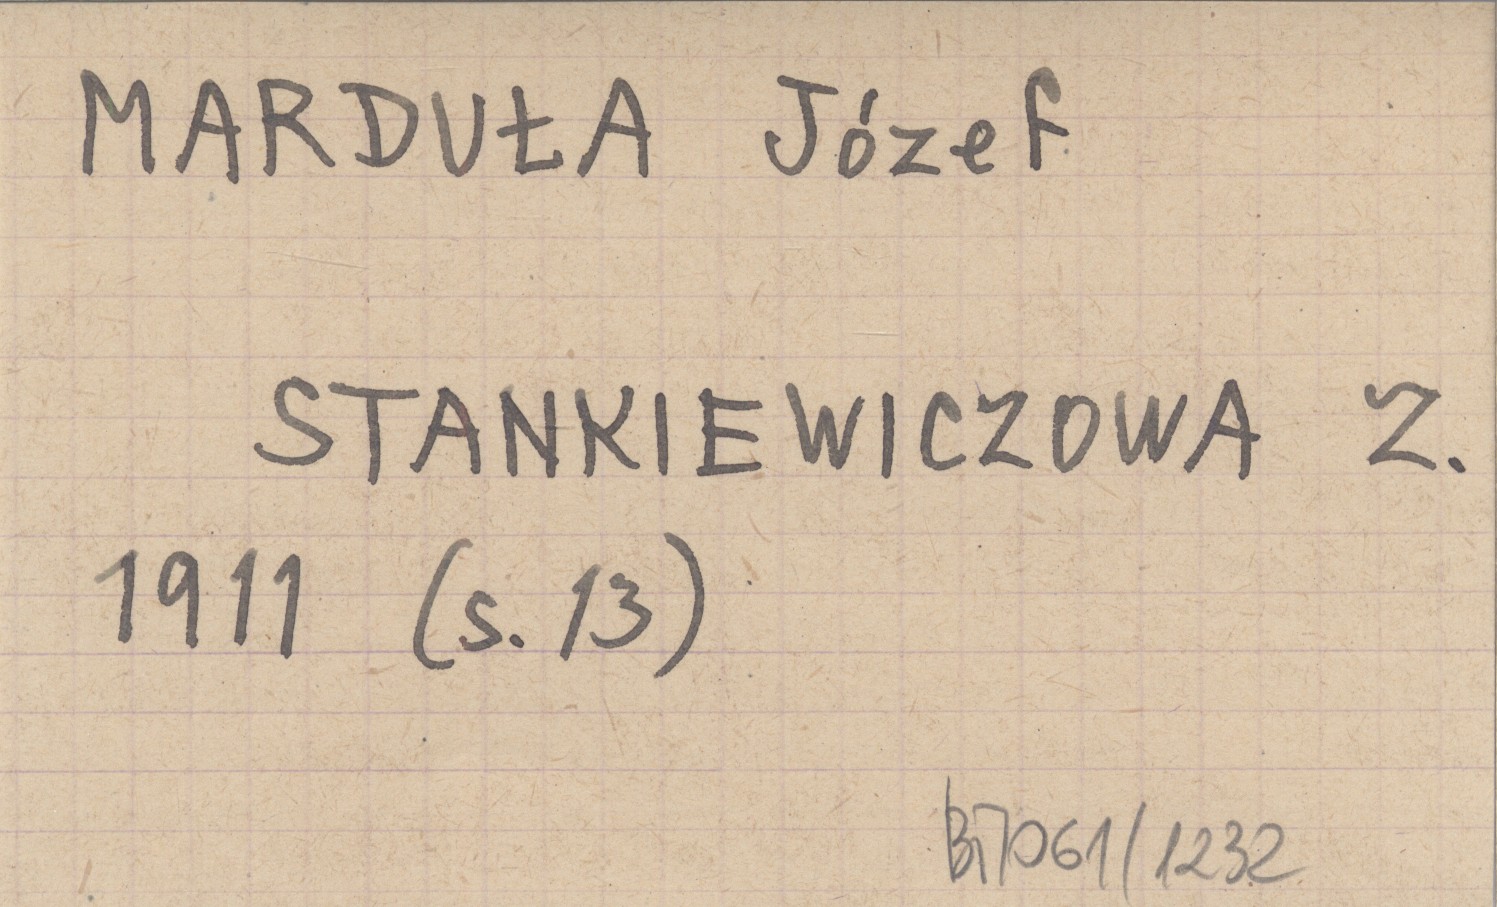 MARDUŁA Józef
STANKIEWICZOWA Z.
1911 (s. 13)
Bi7061/1232